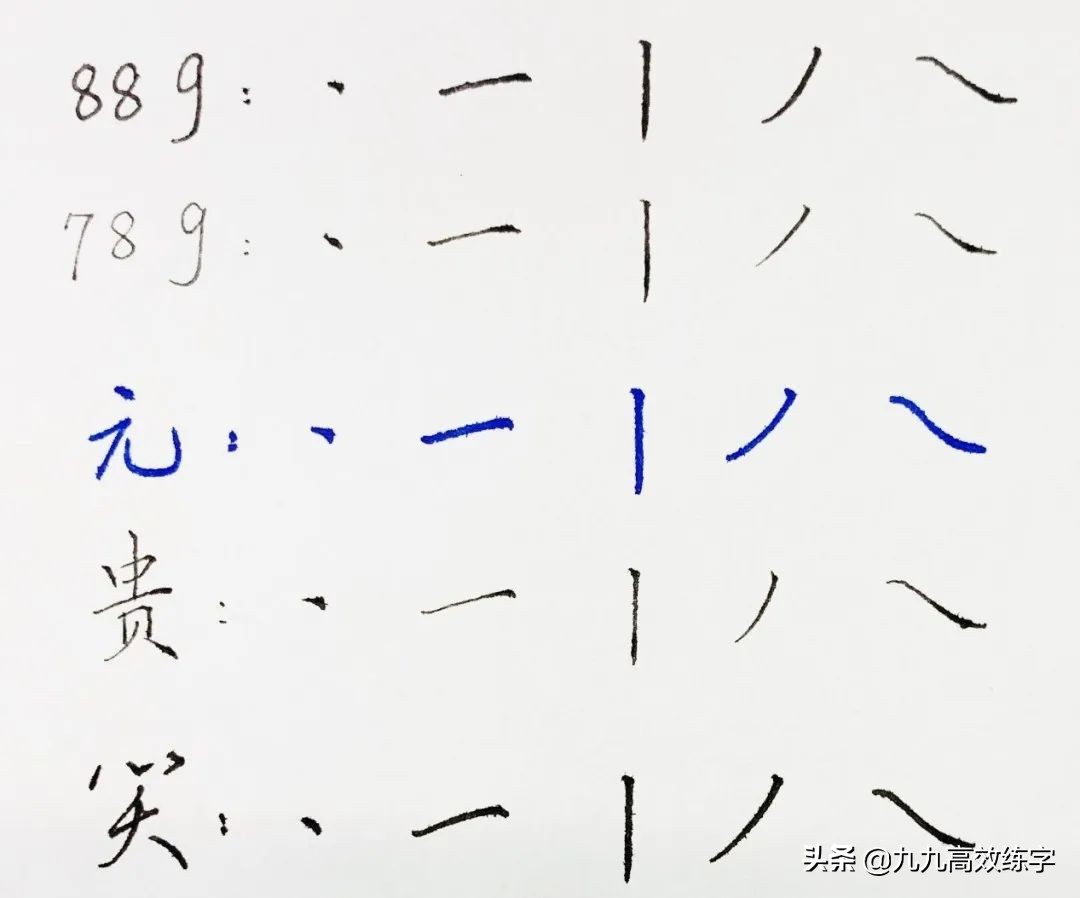 88g：丶 一 丨 丿 ㇏
78g：丶 一 丨 丿 ㇏
元：丶 一 丨 丿 ㇏
贵：丶 一 丨 丿 ㇏
笑：丶 一 丨 丿 ㇏
头条 @九九高效练字